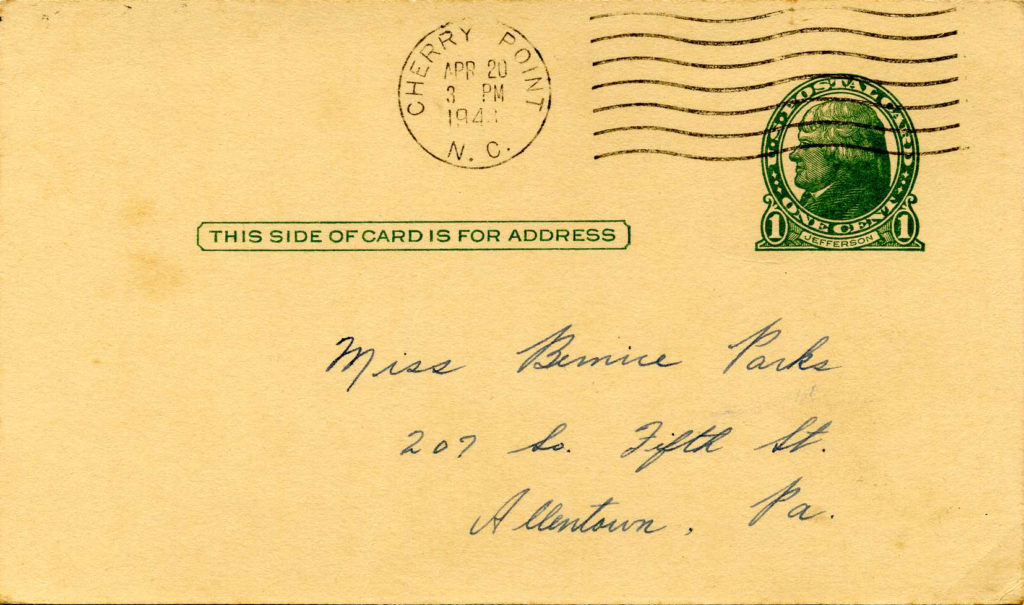 CHERRY POINT
APR 20
3 PM
N. C.
U.S. POSTAL CARD
ONE CENT
1 JEFFERSON 1
THIS SIDE OF CARD IS FOR ADDRESS
Miss Bernice Parks
207 So. Fifth St.
Allentown, Pa.